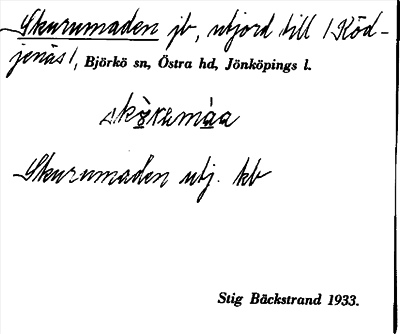 Skurumaden jb, utjord till /Röd-
jenäs/, Björkö sn, Östra hd, Jönköpings l.
Skurumaden utj. kb
Stig Bäckstrand 1933.